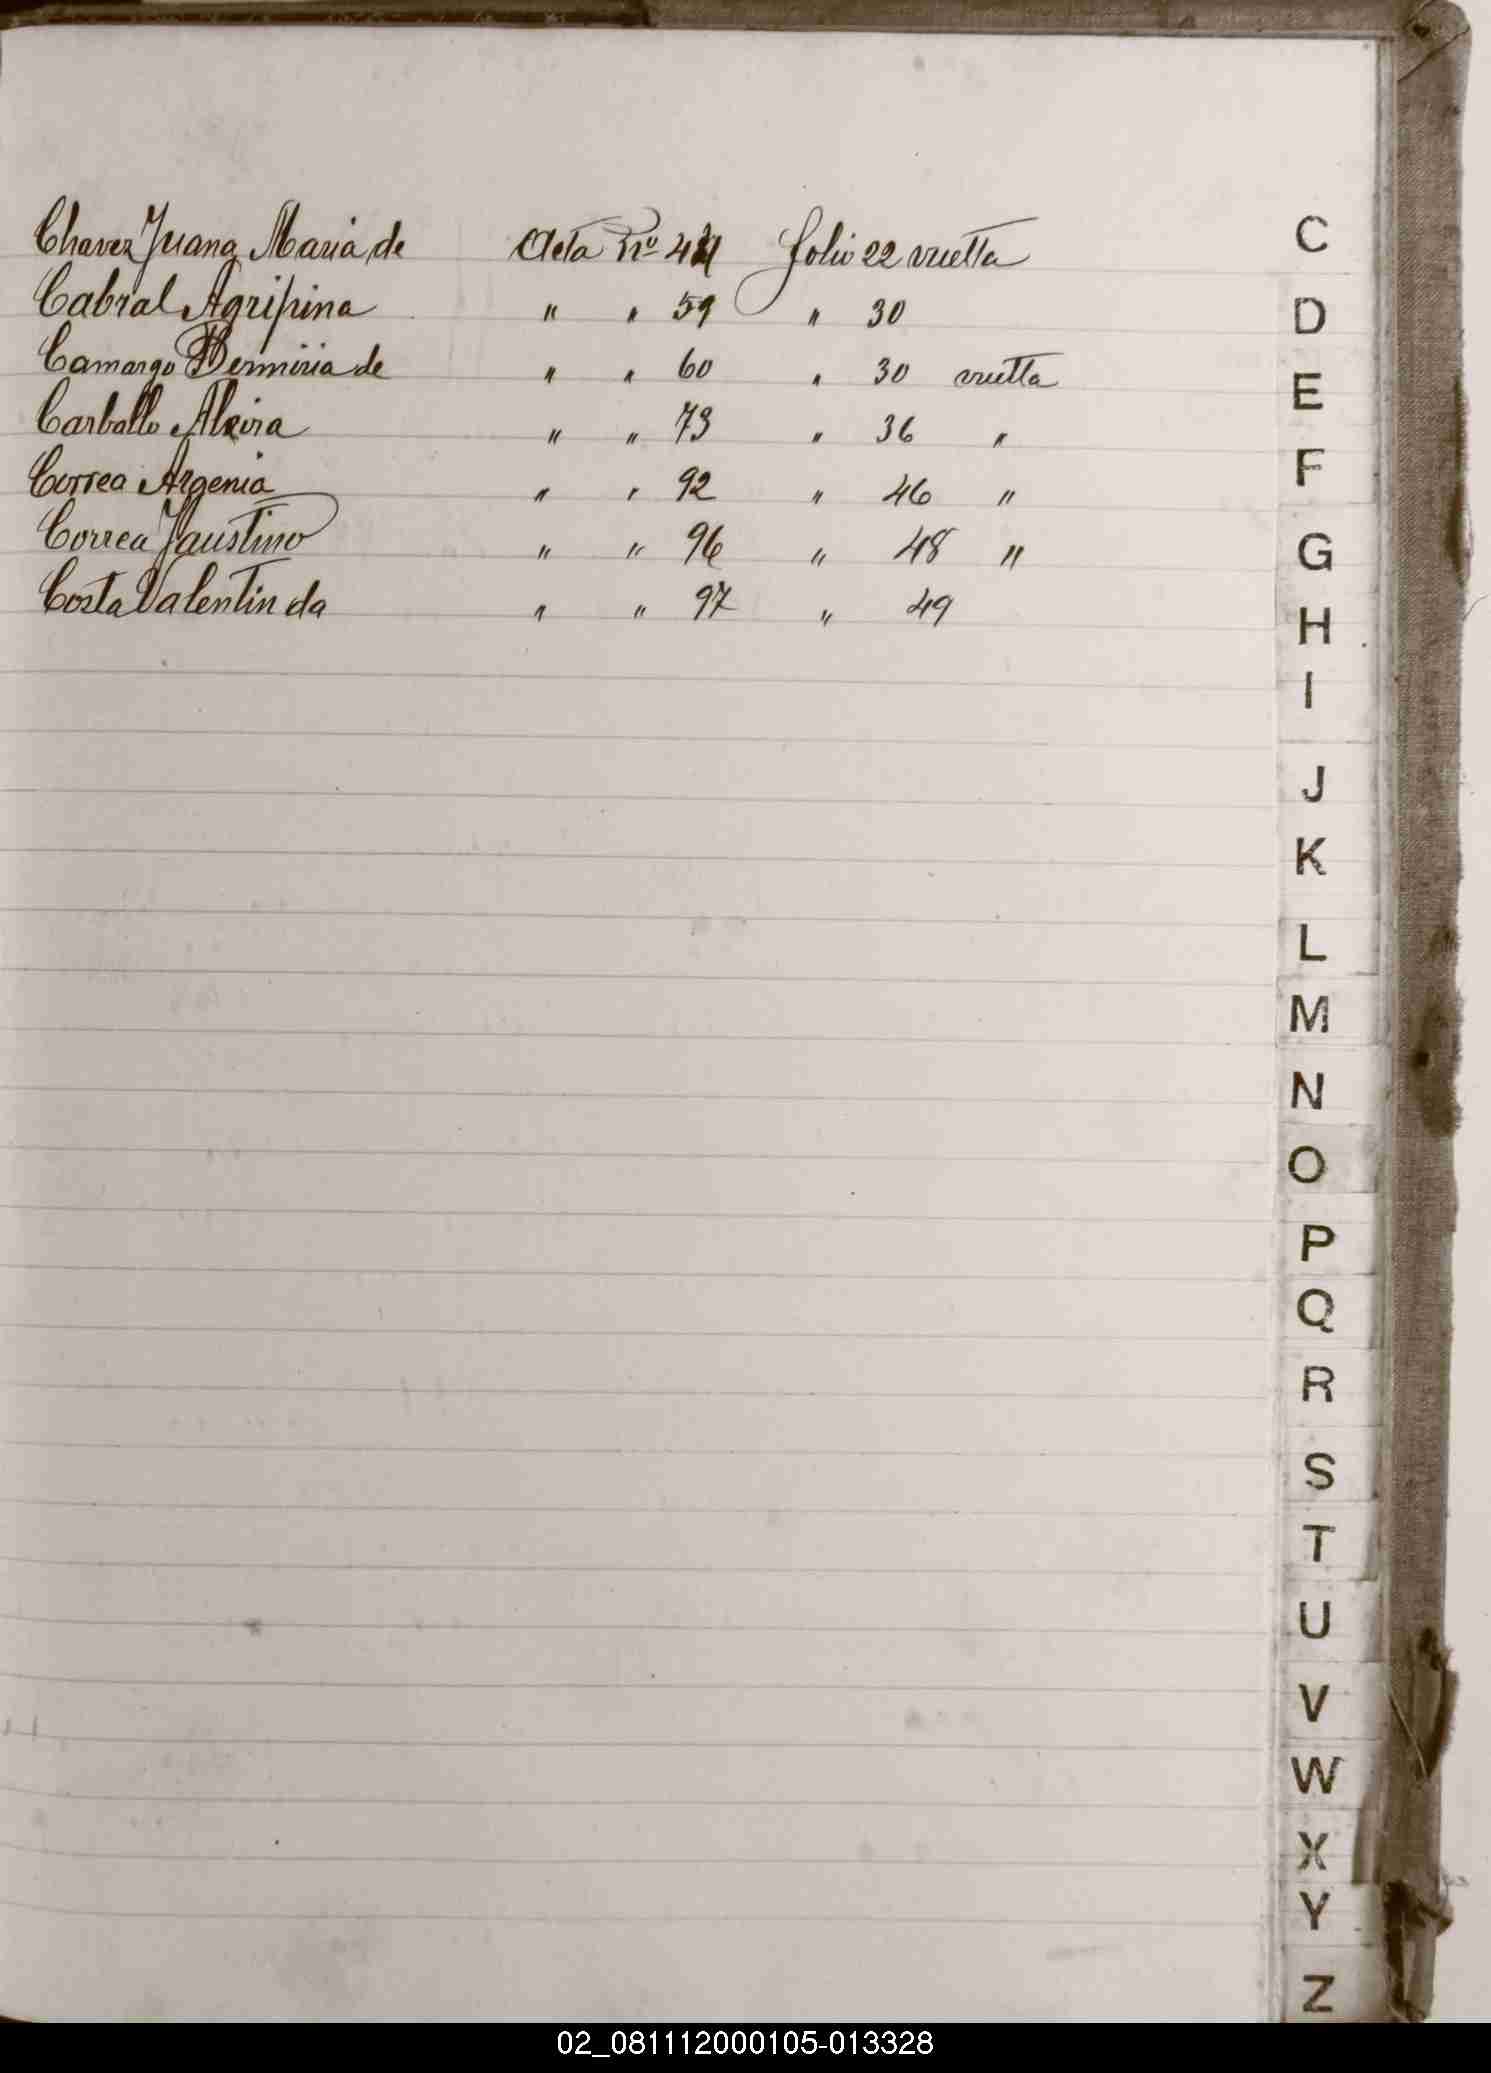 Chavez Juana Maria de Acta Nº 44 folio 22 vuelta
Cabral Agripina " " 59 " 30
Camargo Benniria de " " 60 " 30 vuelta
Carballo Alcira " " 73 " 36 "
Correa Argenia " " 92 " 46 "
Correa Faustino " " 96 " 48 "
Costa Valentin da " " 97 " 49
C
D
E
F
G
H
I
J
K
L
M
N
O
P
Q
R
S
T
U
V
W
X
Y
Z
02_081112000105-013328